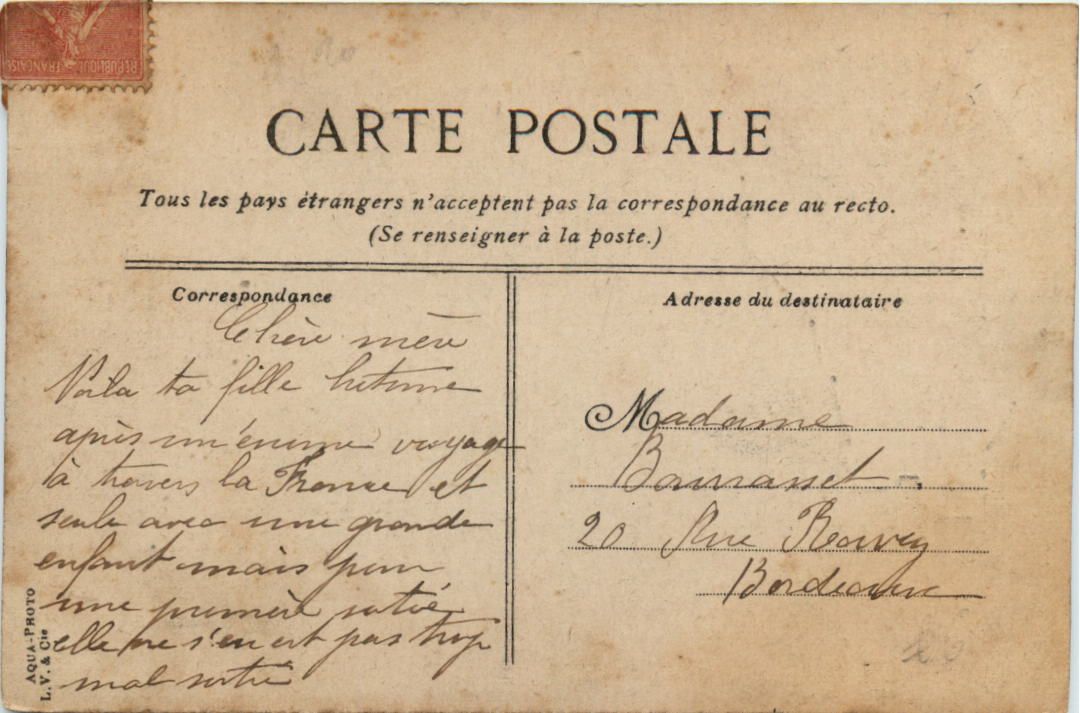 RÉPUBLIQUE FRANÇAISE
CARTE POSTALE
Tous les pays étrangers n'acceptent pas la correspondance au recto.
(Se renseigner à la poste.)
Correspondance
Chère mère
Voila ta fille
après un énorme voyage
à travers la France et
seule avec une grande
enfant mais pour
une première sortie
elle ne s'en est pas trop
mal sortie
AQUA-PHOTO
L.V. & Cie
Adresse du destinataire
Madame
20 Rue Ravez
Bordeaux